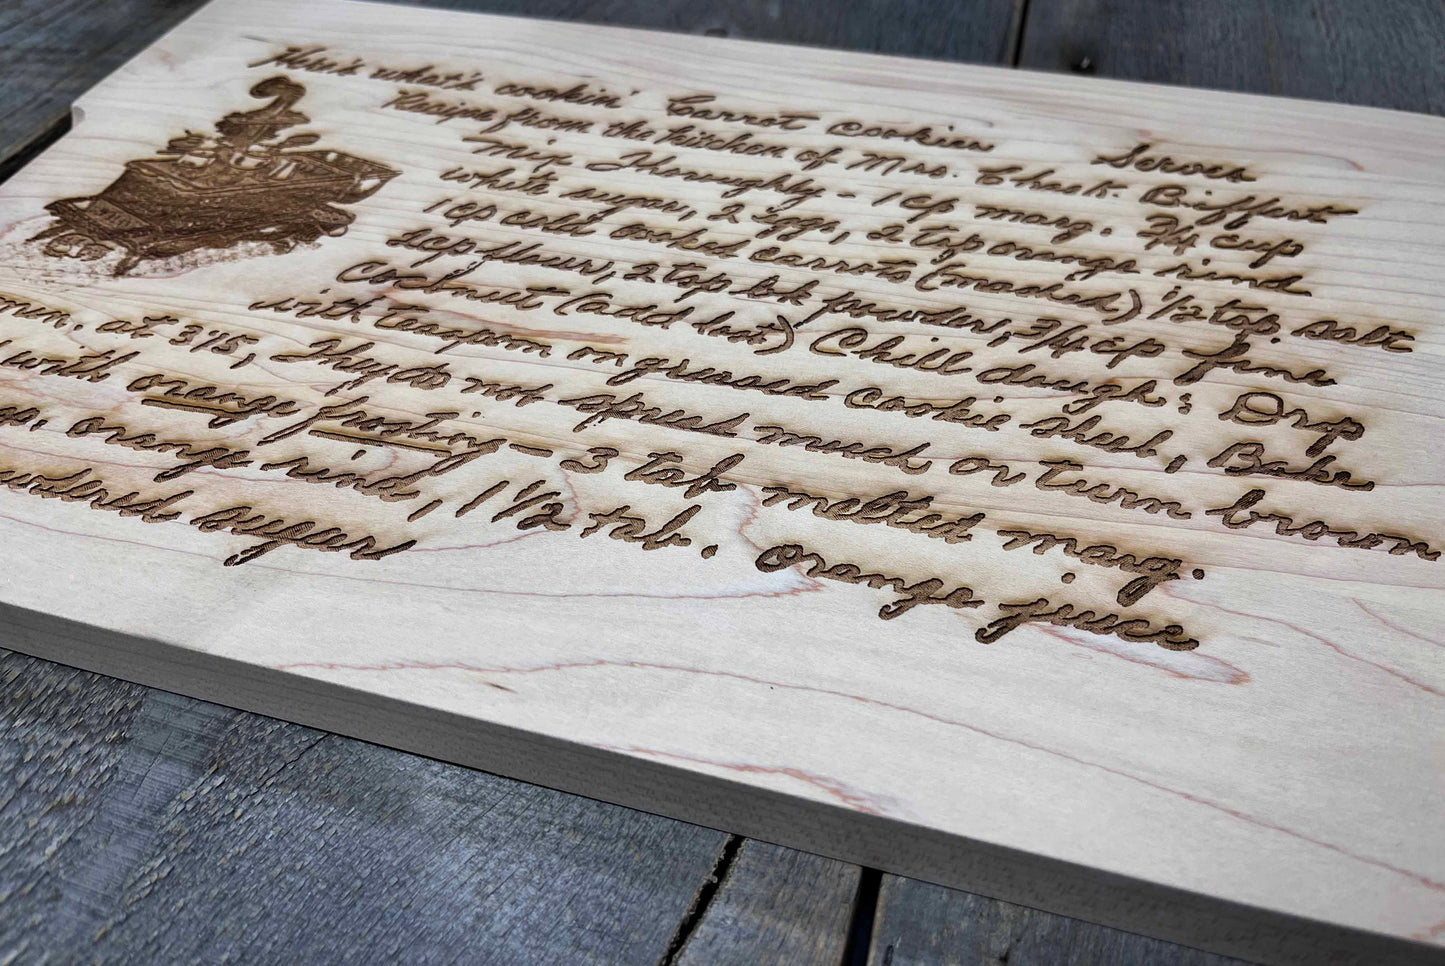 Here's what's cookin' Carrot cookies Serves
Recipe from the kitchen of Mrs. Chas. K. Biffert
Mix Thoroughly - 1 cp marg. 3/4 cup
white sugar, 2 eggs, 2 tsp orange rind
1 cp cold cooked carrots (mashed) 1/2 tsp. salt
2 cp flour, 2 tsp bk powder, 3/4 cp fine
Coconut (add last) Chill dough; Drop
with teaspn on greased cookie sheet, Bake
at 375, They do not spred much or turn brown
with orange frosting - 3 tab melted marg.
orange rind, 1 1/2 tab. orange juice
sugar